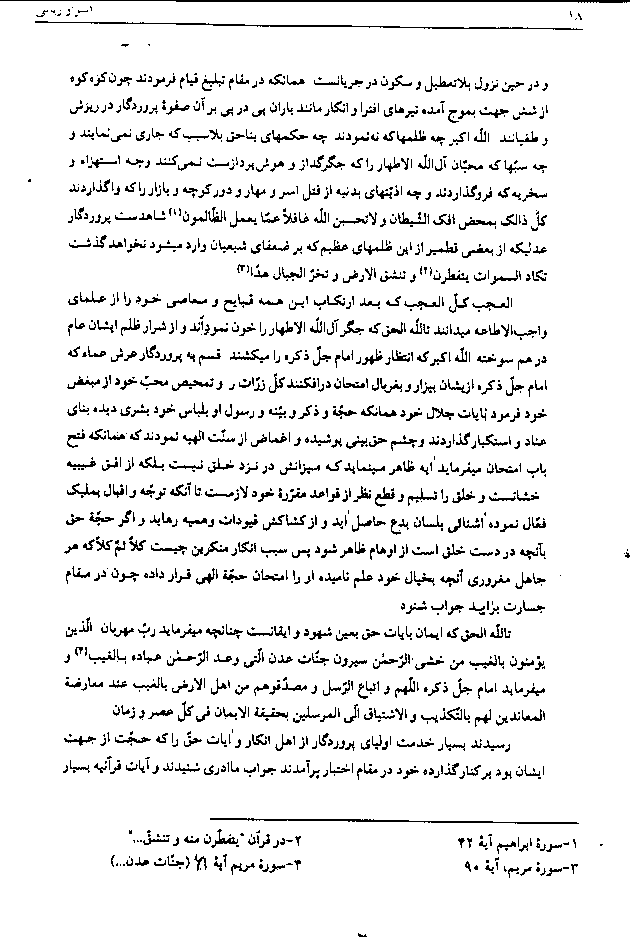 ۱۸
و در حین نزول بلاتعطیل و سکون در جریانست همانکه در مقام تبلیغ قیام فرمودند چون کوه کوه
از شش جهت بموج آمده تیرهای افترا و انکار مانند باران پی در پی بر آن صفوة پروردگار در ریزش
و طغیانند الله اکبر چه ظلمها که نه نمودند چه حکمهای بناحق بلاسبب که جاری نمی‌نمایند و
چه سبّها که محبّان آل‌الله الاطهار را که جگرگداز و هوش‌پردازست نمی‌کنند وچه استهزاء و
سخریه که فروگذاردند و چه اذیّتهای بدنیه از قتل اسر و مهار و دور کوچه و بازار را که واگذاردند
کلّ ذالک بمحض افک الشّیطان و لاتحسبن الله غافلاً عمّا یعمل الظّالمون(۱) شاهدست پروردگار
عدلیکه از بعضی قطمیر از این ظلمهای عظیم که بر ضعفای شیعیان وارد میشود نخواهد گذشت
تکاد السموات یتفطرن(۲) و تنشق الارض و تخرّ الجبال هدّا(۳)
العجب کلّ العجب که بعد ارتکاب این همه قبایح و معاصی خود را از علمای
واجب‌الاطاعه میدانند تالله الحق که جگر آل‌الله الاطهار را خون نموده‌اند و از شرار ظلم ایشان عام
در هم سوخته الله اکبر که انتظار ظهور امام جلّ ذکره را میکشند قسم به پروردگار عرش عماء که
امام جلّ ذکره ازیشان بیزار و بغربال امتحان درافکنند کلّ زرّات ر و تمحیص محبّ خود از مبغض
خود فرمود بآیات جلال خود همانکه حجّة و ذکر و بیّنه و رسول او بلباس خود بشری دیده بنای
عناد و استکبار گذاردند وچشم حق‌بینی پوشیده و اغماض از سنّت الهیه نمودند که همانکه فتح
باب امتحان میفرماید آیه ظاهر مینماید که میزانش در نزد خلق نیست بلکه از افق غیبیه
خشانست و خلق را تسلیم و قطع نظر از قواعد مقررّة خود لازمست تا آنکه توجّه و اقبال بملیک
فعّال نموده آشنائی بلسان بدع حاصل آید و از کشاکش قیودات وهمیه رهاید و اگر حجّة حق
بآنچه در دست خلق است از اوهام ظاهر شود پس سبب انکار منکرین چیست کلاّ ثمّ کلاّ که هر
جاهل مغروری آنچه بخیال خود علم نامیده ار را امتحان حجّة الهی قرار داده چون در مقام
جسارت برآید جواب شنود
تالله الحق که ایمان بایات حق بعین شهود و ایقانست چنانچه میفرماید ربّ مهربان الّذین
یؤمنون بالغیب من خشی الرّحمٰن سیرون جنّات عدن الّتی وعد الرّحمٰن عباده بالغیب(۴) و
میفرماید امام جلّ ذکره اللّهم و اتباع الرّسل و مصدّقوهم من اهل الارض بالغیب عند معارضة
المعاندین لهم بالتّکذیب و الاشتیاق الی المرسلین بحقیقة الایمان فی کلّ عصر و زمان
رسیدند بسیار خدمت اولیای پروردگار از اهل انکار و آیات حقّ را که حجّت از جهت
ایشان بود برکنار گذارده خود در مقام اختبار برآمدند جواب ماادری شنیدند و آیات قرآنیه بسیار
۱–سورة ابراهیم آیة ۴۲
۲–در قرآن "یتفطّرن منه و تنشقّ..."
۳–سورة مریم، آیة ۹۰
۴–سورة مریم آیة ۶۱ (جنّات عدن...)